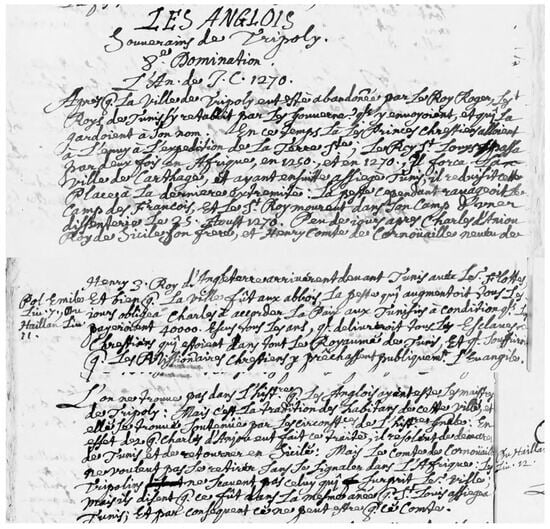 LES ANGLOIS
Souverains de Tripoly.
8e. Domination.
L'An. de J.C. 1270.
Apres q. La Ville de Tripoly eut esté abandonnée par Le Roy Roger, Les
Roys de Tunis y retablit par Les Gouverne. qls y envoyoient, et qui La
gardoient à Son nom. En ce Temps La Les Princes Chrestiens alloient
à L'envy à L'expedition de La Terre Ste; Le Roy St. Louys passa
par deux fois en Affrique, en 1250, et en 1270; Il força La
Ville de Carthage, et ayant ensuitte assiegé Tunis, il reduisit cette
Place à La derniere extremité. La Peste cependant ravageoit Le
Camp des François, et Le St. Roy mourut dans Son Camp
dissenterie Le 25. Aoust 1270. Peu de jours apres Charles d'Anjou
Roy de Sicile Son frere, et Henry Comte de Cornoüailles neveu de
Henry 3. Roy d'Angleterre arriverent devant Tunis avec Les Flottes
Pol. Emile
Liv. 7, Du
Haillan Liv.
11.
Et bien q. La Ville fût aux abbois, La peste qui augmentoit tous Les
jours obligea Charles d'accorder La Paix aux Tunisins à condition qls
payeroient 40000. Escus tous Les ans, qls delivreroit tous Les Esclaves
Chrestiens qui estoient dans tout Le Royaume de Tunis, Et qls souffriroit
q. Les Missionnaires Chrestiens y prechassent publiquemt. L'Evangile.
L'on ne trouve pas dans L'histre. q. Les Anglois ayant esté Les maistres
de Tripoly: Mais c'est La tradition des habitans de cette Ville, et
elle se trouve soutenue par Les circonstces. de L'histre. En
effet des q. Charles d'Anjou eut fait ce traité, il resolut de
de Tunis et de retourner en Sicile: Mais Le Comte de Cornoüaille
ne voulut pas Se retirer Sans Se Signaler dans L'Affrique: Les
Du Haillan
Liv. 12.
Tripolins ne Scavent pas celuy qui Surprit Leur Ville;
mais ils disent q. ce fût dans La mesme année q. St. Louis assiegea
Tunis; Et par consequent ce ne peut estre q. ce Comte.